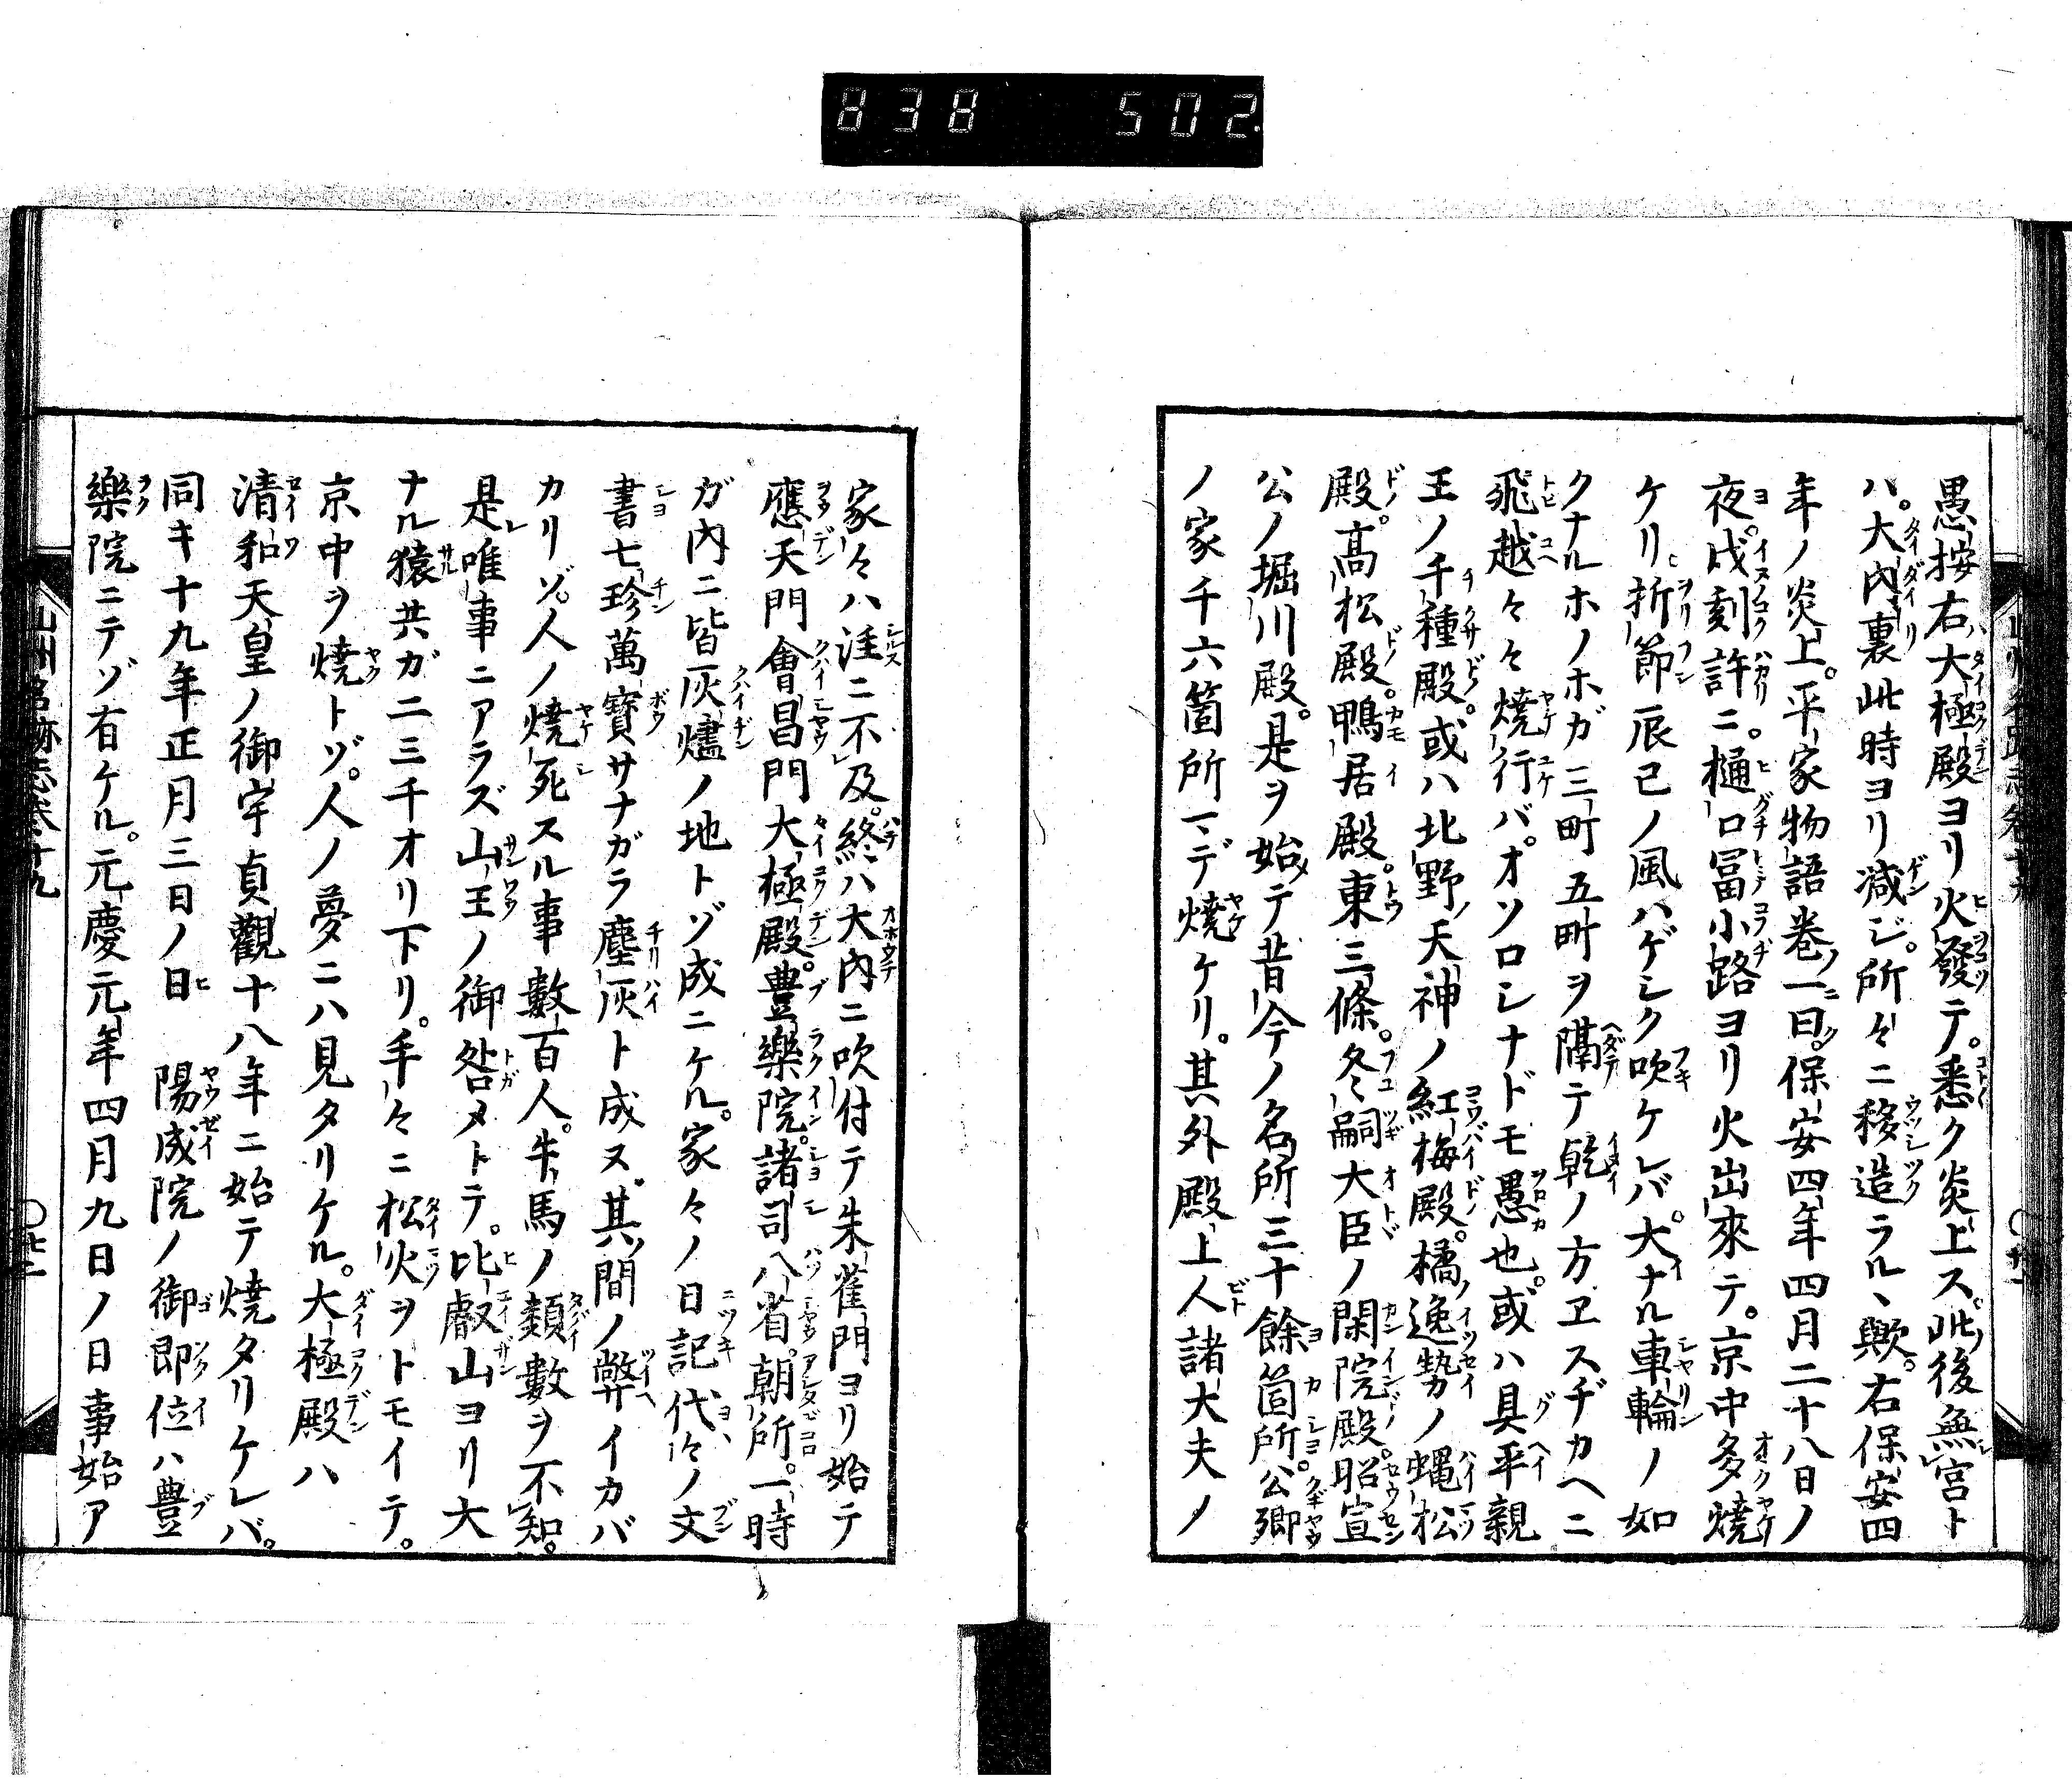 838 502
愚按右大極殿ヨリ火發テ。悉ク炎上ス。此後無宮ト
ハ。大内裏此時ヨリ減ジ。所々ニ移造ラル丶歟。右保安四
年ノ炎上。平家物語巻一曰。保安四年四月二十八日ノ
夜。戌刻許ニ。樋口冨小路ヨリ火出來テ。京中多焼
ケリ折節辰巳ノ風ハゲシク吹ケレバ。大ナル車輪ノ如
クナルホノホガ三町五町ヲ隔テ乾ノ方ヱスヂカヘニ
飛越々々焼行バ。オソロシナドモ愚也。或ハ具平親
王ノ千種殿。或ハ北野ノ天神ノ紅梅殿。橘逸勢ノ蠅松
殿。髙松殿。鴨居殿。東三條。冬嗣大臣ノ閑院殿。昭宣
公ノ堀川殿。是ヲ始テ昔今ノ名所三十餘箇所。公卿
ノ家千六箇所マデ焼ケリ。其外殿上人諸大夫ノ
家々ハ註ニ不及。終ハ大内ニ吹付テ朱雀門ヨリ始テ
應天門會昌門大極殿。豊樂院。諸司八省。朝所。一時
ガ内ニ皆灰燼ノ地トゾ成ニケル。家々ノ日記代々ノ文
書七珍萬寳サナガラ塵灰ト成ヌ。其間ノ弊イカバ
カリゾ。人ノ焼死スル事數百人。牛馬ノ類數ヲ不知。
是唯事ニアラズ山王ノ御咎メトテ。比叡山ヨリ大
ナル猿共ガ二三千オリ下リ。手々ニ松火ヲトモイテ。
京中ヲ焼トゾ。人ノ夢ニハ見タリケル。大極殿ハ
清和天皇ノ御宇貞觀十八年ニ始テ焼タリケレバ。
同キ十九年正月三日ノ日 陽成院ノ御即位ハ豊
樂院ニテゾ有ケル。元慶元年四月九日ノ日事始ア
山州名跡志巻十九